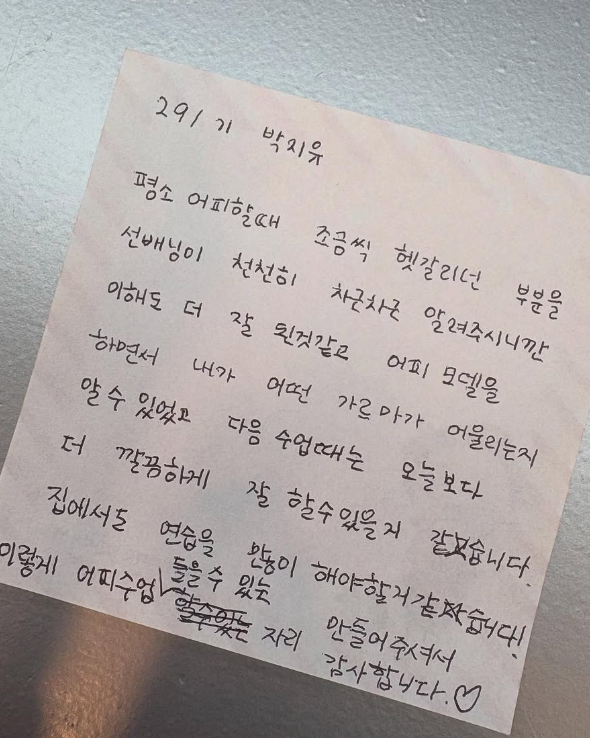 291기 박지유
평소 어피할때 조금씩 헷갈리던 부분을
선배님이 천천히 차근차근 알려주시니깐
이해도 더 잘 된것같고 어피 모델을
하면서 내가 어떤 가르마가 어울리는지
알 수 있었고 다음 수업때는 오늘보다
더 깔끔하게 잘 할수있을거 같습니다.
집에서도 연습을 많이 해야할거같습니다!
이렇게 어피수업 들을수 있는 자리 만들어주셔서
감사합니다.♡